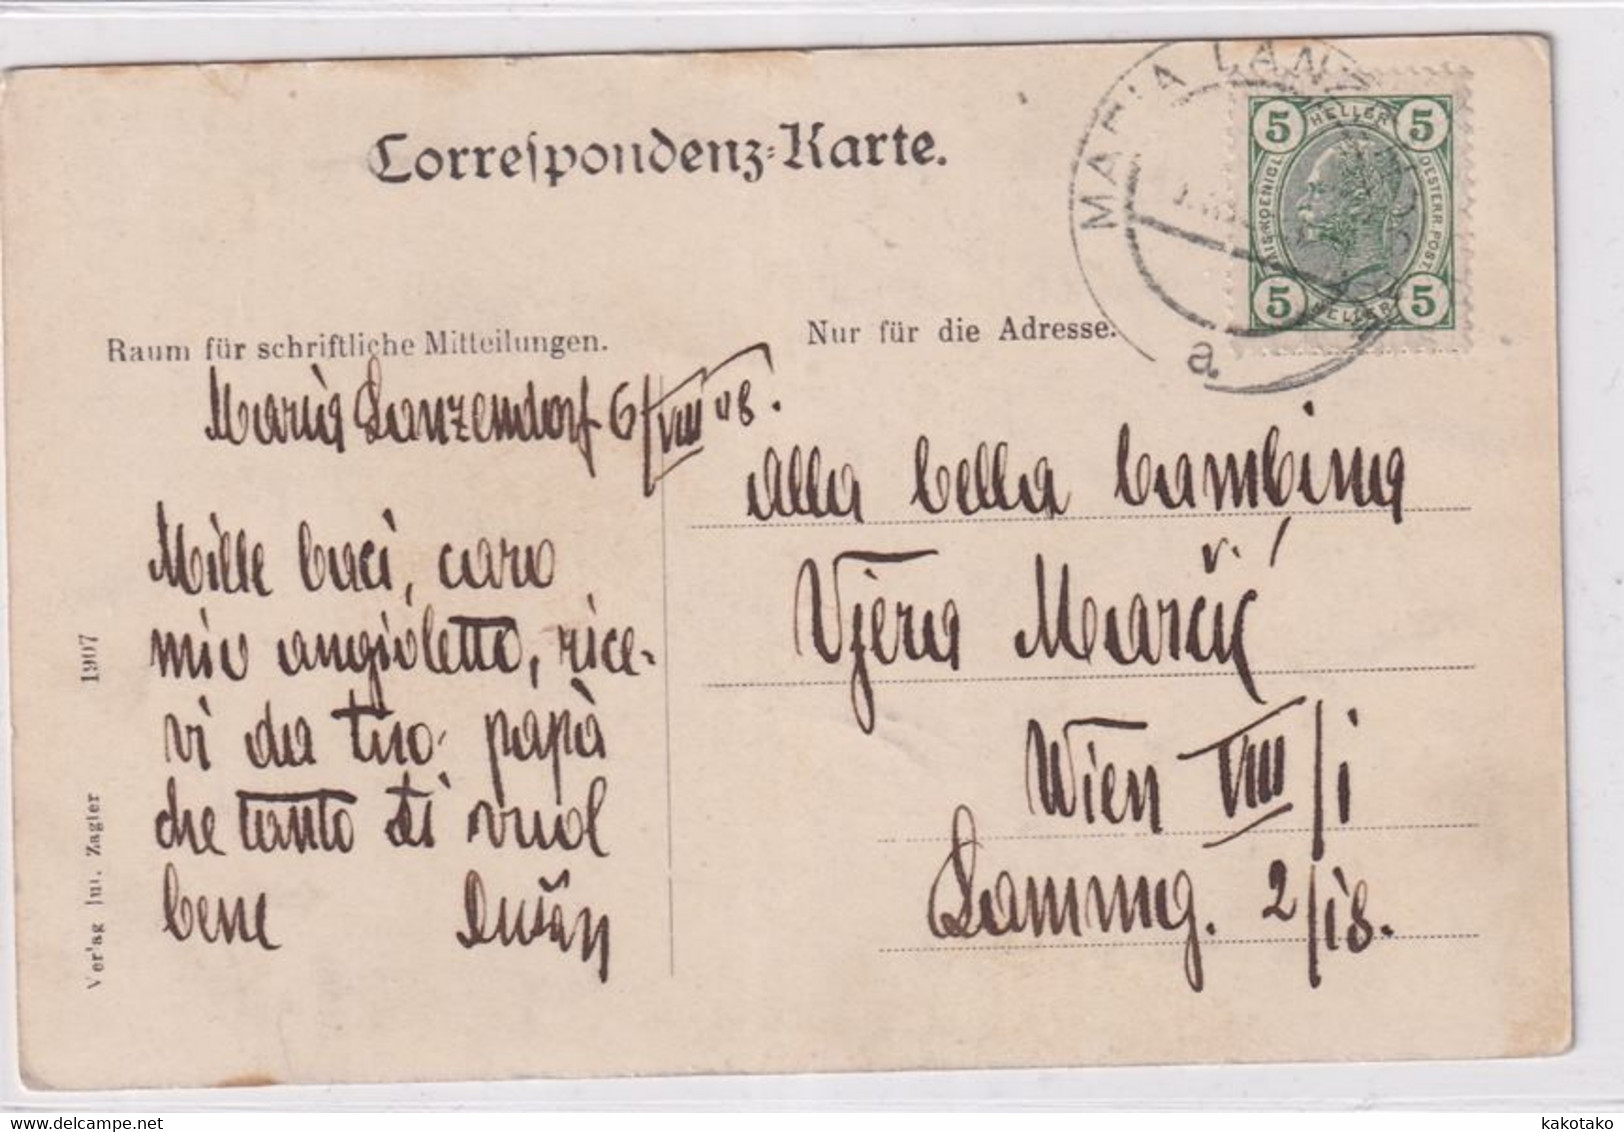 Correspondenz-Karte.
MARIA LANZ
a.
5 HELLER 5
5 HELLER 5
Raum für schriftliche Mitteilungen.
Nur für die Adresse.
Maria Lanzendorf 6/VIII 08.
Mille baci, caro
mio angioletto, rice-
vi da tuo papà
che tanto ti vuol
bene Dušan
alla bella bambina
Vjera Marčić
Wien VIII/1
Lammg. 2/18.
Verlag Jul. Zagler 1907
kakotako